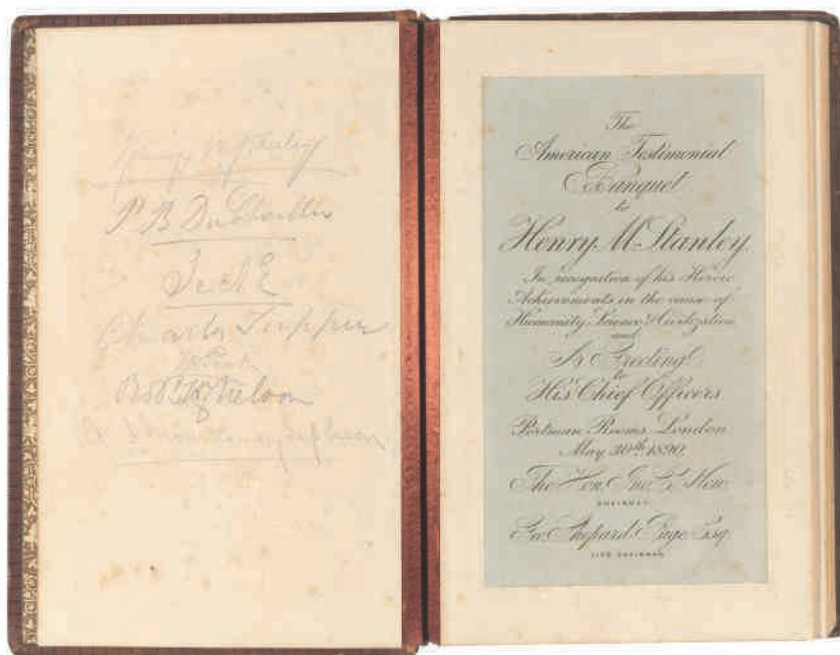 Henry M Stanley
P B Du Chaillu
Charles Tupper
Robt H Nelson
The
American Testimonial
Banquet
to
Henry M. Stanley
In recognition of his Heroic
Achievements in the cause of
Humanity, Science & Civilization
and
In Greeting
to
His Chief Officers
Portman Rooms, London
May 30th 1890.
The Hon.
CHAIRMAN
Shepard Page Esq.
VICE CHAIRMAN